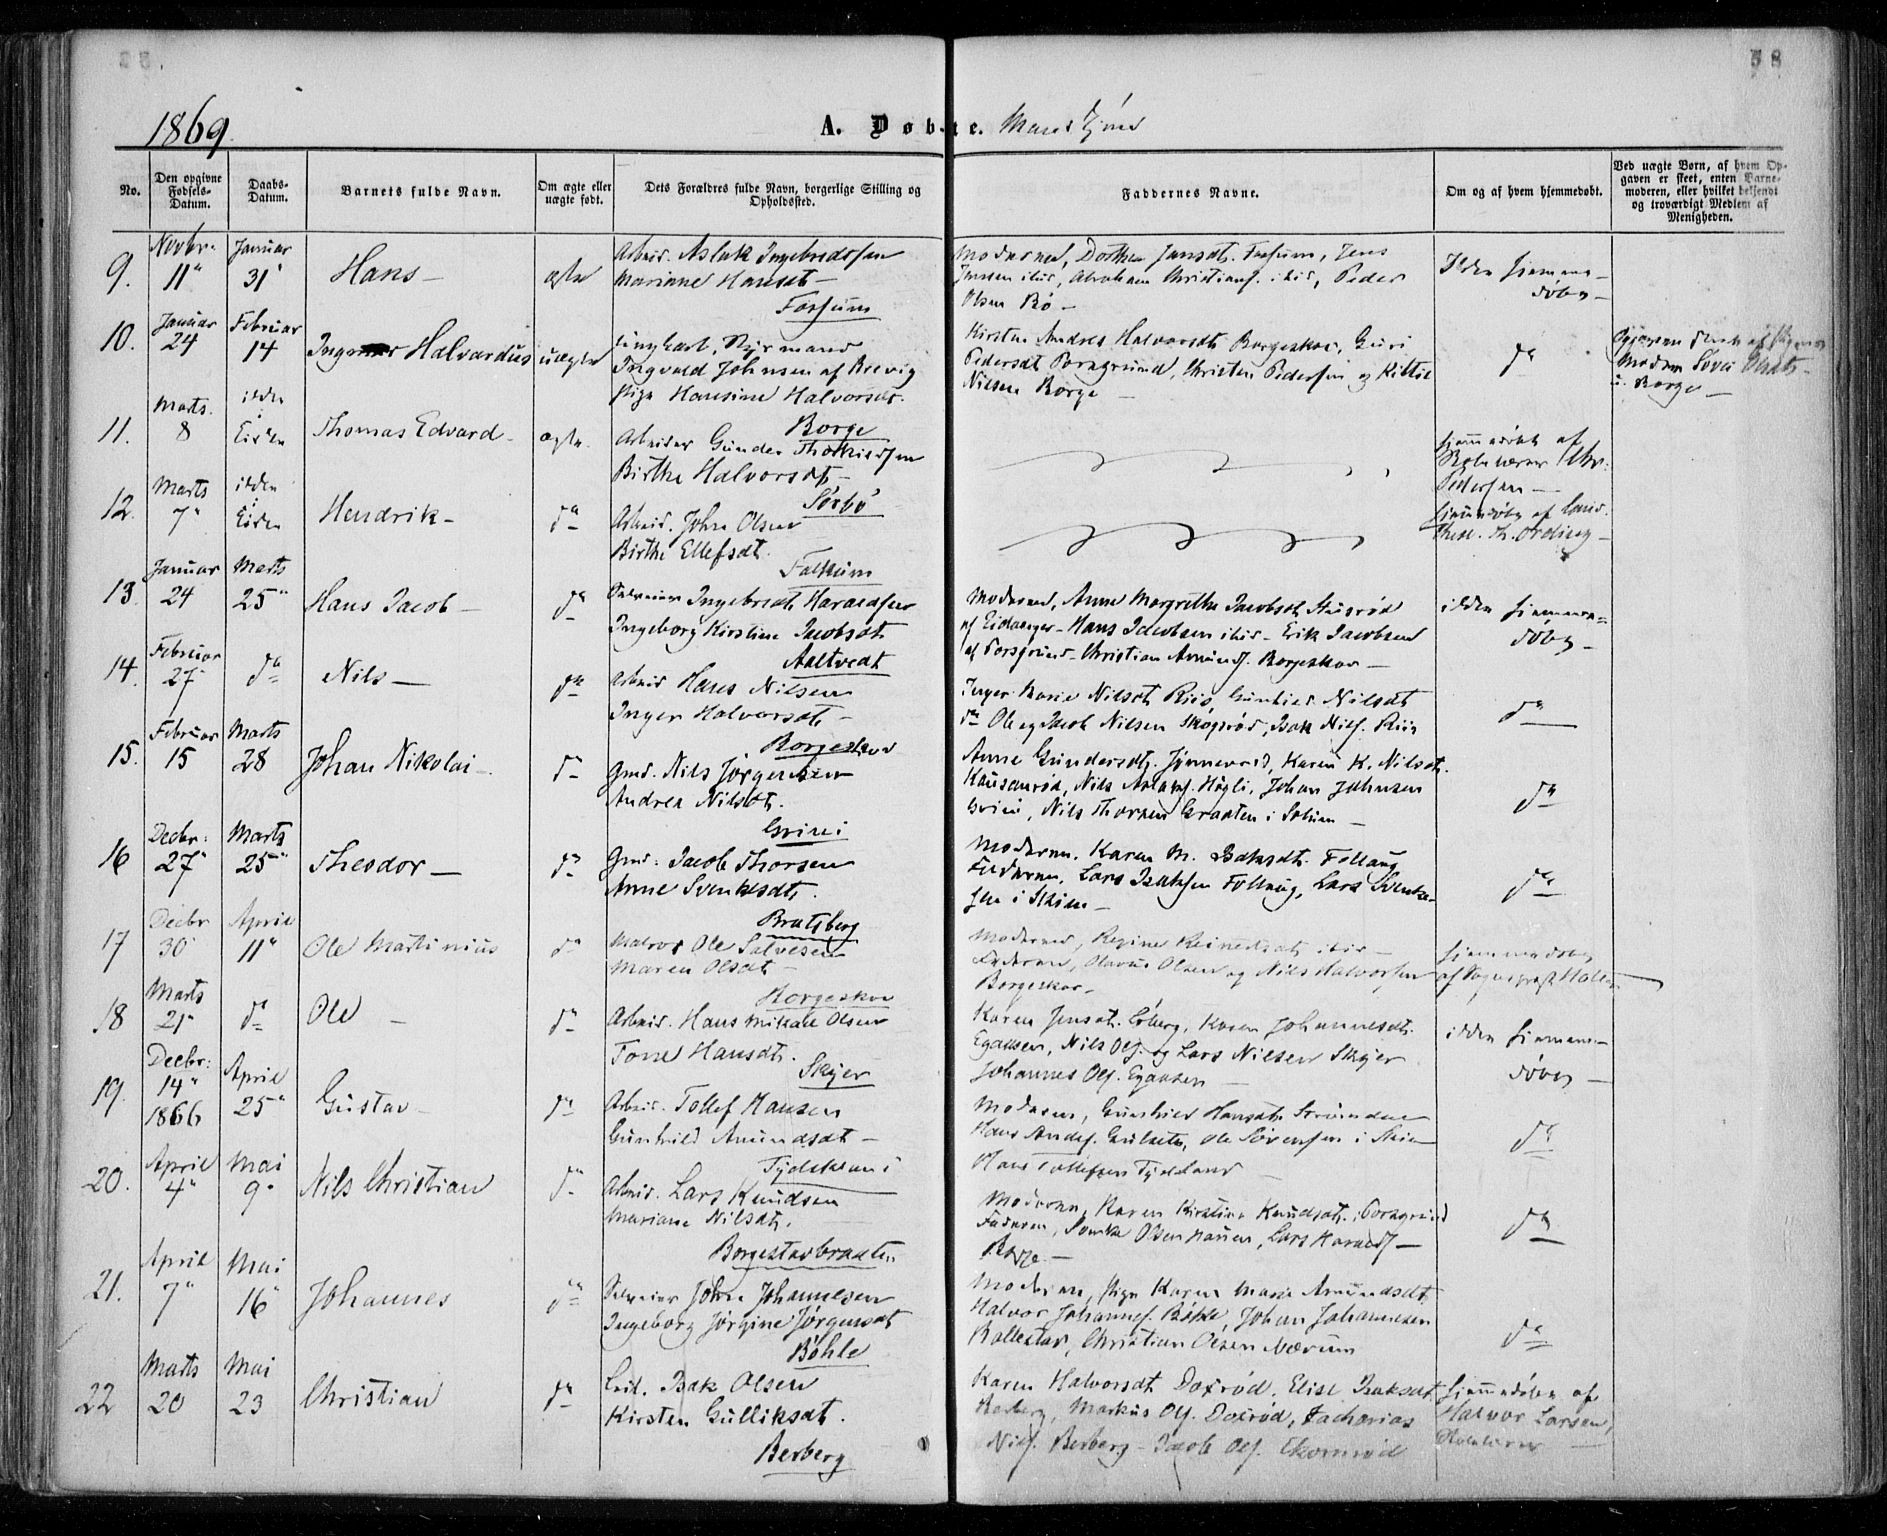 58
1869.
A. Døbte. Mandkjøn
No.
Den opgivne Fødsels-Datum.
Daabs-Datum.
Barnets fulde Navn.
Om ægte eller uægte født.
Dets Forældres fulde Navn, borgerlige Stilling og Opholdssted.
Faddernes Navne.
Om og af hvem hjemmedøbt.
Ved uægte Børn, af hvem Opgaven er skeet, enten Barnemoderen, eller hvilket bekjendt og troværdigt Medlem af Menigheden.
9. Novbr. 11" Januar 31" Hans - ægte
Arbeid. Aslak Ingebredsen
Mariane Hansdt -
Fossum
Moderen, Dorthea Jensdt. Fossum, Jens
Jensen ibid, Abraham Christians. ibid, Peder
Olsen Bø -
Ikke hjemme-
døbt -
10. Januar 24 Februar 14 Halvardus uægte
Ungkarl, Styrmand
Ingvald Johnsen af Brevig
Pige Hansine Halvorsdt.
Borge
Kirstine Andrea Halvorsdt Borgeskov, Guri
Pedersdt Porsgrund, Christen Pedersen og Kittil
Nilsen Borge -
do
Moderen
Borge -
11. Marts. 8 ikke i Kirken Thomas Edvard - ægte.
Arbeider Gunder Thomesen
Birthe Halvorsdt -
Sørbø
hjemmedøbt af
Skolelærer Chr.
Pedersen -
12. Marts 7" ikke i Kirken Hendrik - do
Arbeid. John Olsen
Birthe Ellefsdt.
Falkum
hjemmedøbt af Cand.
theol. Th. Ording -
13 Januar 24 Marts 25" Hans Jacob - do
Selveier Ingebredt Haraldsen
Ingeborg Kirstine Jacobsdt.
Aaltvedt
Moderen, Anne Margrethe Jacobsdt
af Eidanger - Hans Jacobsen ibid - Erik Jacobsen
af Porsgrund - Christian Amunds. Borgeskov -
ikke hjemme-
døbt -
14. Februar 27 do Nils - do
Arbeid Hans Nilsen
Inger Halvorsdt -
Borgeskov
Inger Marie Nilsdt Riis, Gunhild Nilsdt
do Ole og Jacob Nilsen Skogrød, Isak Nils. Riis
do
15. Februar 15 Marts 28 Johan Nikolai - do
Gmd. Nils Jørgensen
Andrea Nilsdt.
Grini
Anne Gundersdt. Karen K. Nilsdt.
Nils Høgli, Johan Johnsen
Grini, Nils Thorsen Graaten i Solum -
do
16 Decbr: 27" Marts 25" Theodor - do
Gmd: Jacob Thorsen
Anne Svenkesdt.
Bratsberg
Moderen. Karen M. Isaksdt. Follaug
Faderen, Lars Isaksen Follaug, Lars Svenke-
sen i Skien -
do
17 Decbr 30" April 11" Ole Martinius do
Matros Ole Salvesen
Maren Olsdt -
Borgeskov
Moderen, Regine ibid -
Faderen, Olavus Olsen og Nils Halvorsen
Borgeskov -
hjemmedøbt
af Sognepræst
18 Marts 21" do Ole - do
Arbeid. Hans Mikael Olsen
Tone Hansdt.
Skyer
Karen Jensdt. Karen Johannesdt.
Nils Ols. og Lars Nilsen Skyer
Johannes Ols. -
ikke hjemme-
døbt -
19. Decbr: 14" 1866 April 25" Gustav - do
Arbeid. Tollef Hansen
Gunhild Amundsdt -
Moderen, Gunhild Hansdt.
Hans Anders. Gulset, Ole Sørensen i Skien
Hans Tollefsen
do
20. April 4" Mai 9" Nils Christian do
Arbeid. Lars Knudsen
Mariane Nilsdt.
Borgestadbraaten
Moderen, Karen Kirstine Knudsdt. i Porsgrund
Faderen, Svenke Olsen Lars Haralds. -
Borge -
do
21. April 7" Mai 16" Johannes do
Selveier John Johannesen
Ingeborg Jørgine Jørgensdt
Bøhle
Moderen, Pige Karen Marie Amundsdt.
Halvor Johannes. Bøhle, Johan Johannesen
Ballestad, Christian Olsen Nærum
do
22 Marts 20 Mai 23 Christian do
Leil. Isak Olsen
Kirsten Gulliksdt.
Berberg
Karen Halvorsdt Doxrød, Elise Isaksdt
Berberg, Markus Ols. Doxrød, Zacharias
Nils. Berberg - Jacob Ols. Ekornrød
hjemmedøbt af
Halvor Larsen,
Skolelærer -